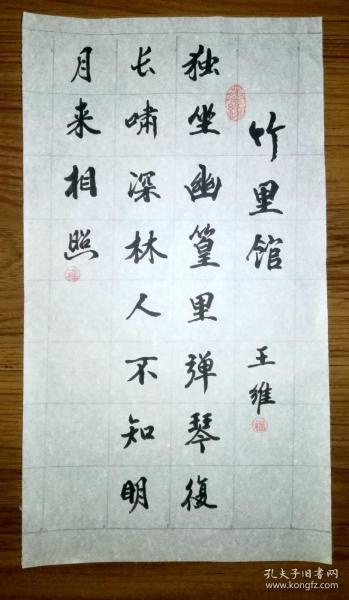 竹里馆 王维
独坐幽篁里弹琴復
长啸深林人不知明
月来相照
孔夫子旧书网
www.kongfz.com